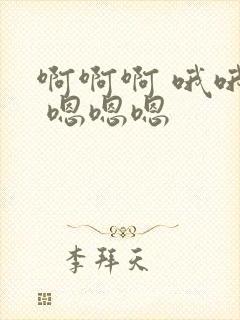 啊啊啊 哦哦
嗯嗯嗯
李拜天